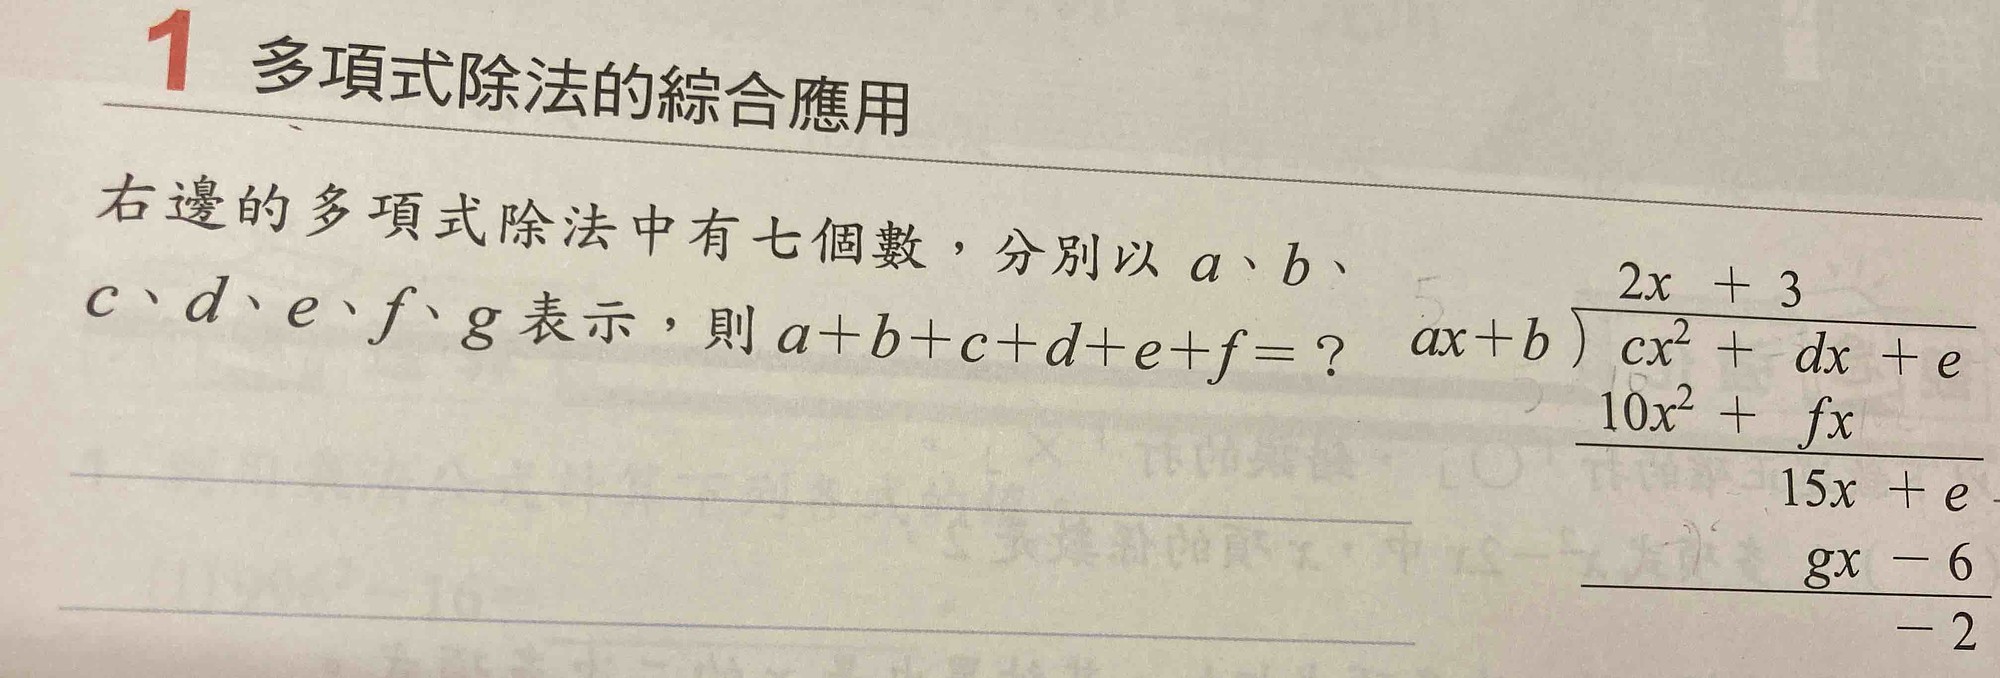 1 多項式除法的綜合應用
右邊的多項式除法中有七個數，分別以 a、b、
c、d、e、f、g 表示，則 a+b+c+d+e+f=？
2x + 3
ax+b ) cx² + dx + e
10x² + fx
15x + e
gx − 6
− 2